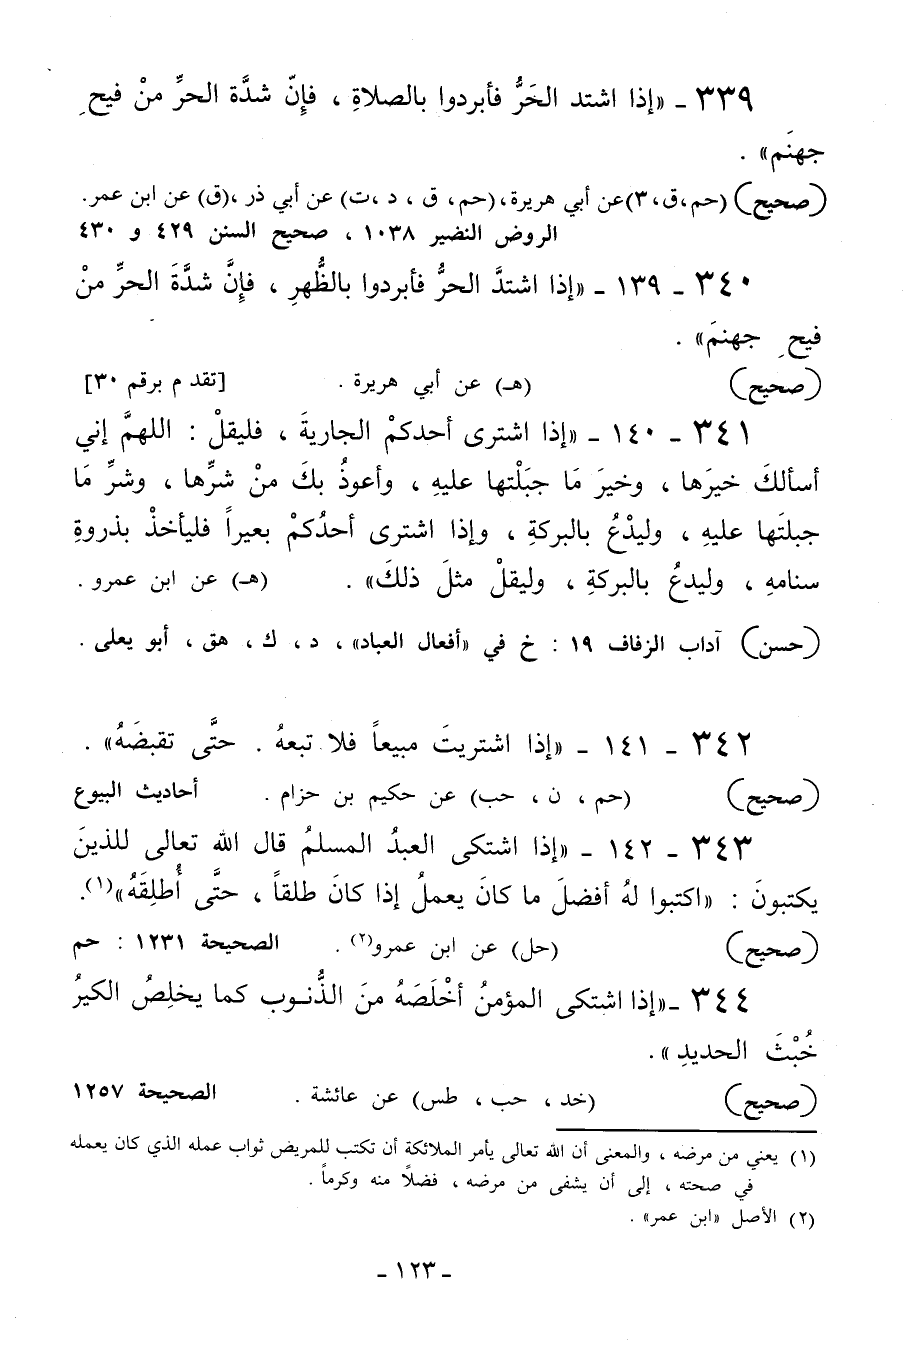 ٣٣٩ ـ «إذا اشتد الحَرُّ فأبردوا بالصلاةِ ، فإِنّ شدَّة الحرِّ منْ فيحِ
جهنَم» .
(صحيح) (حم،ق،٣)عن أبي هريرة،(حم، ق ، د ،ت) عن أبي ذر ،(ق) عن ابن عمر.
الروض النضير ١٠٣٨ ، صحيح السنن ٤٢٩ و ٤٣٠
٣٤٠ ـ ١٣٩ ـ «إذا اشتدَّ الحرُّ فأبردوا بالظُّهرِ ، فإِنَّ شدَّةَ الحرِّ منْ
فيحِ جهنمَ» .
(صحيح) (هـ) عن أبي هريرة . [تقدم برقم ٣٠]
٣٤١ ـ ١٤٠ ـ «إذا اشترى أحدكمْ الجاريةَ ، فليقلْ : اللهمَّ إني
أسألكَ خيرَها ، وخيرَ مَا جبَلْتها عليهِ ، وأعوذُ بكَ منْ شرِّها ، وشرِّ مَا
جبلتَها عليهِ ، وليدْعُ بالبركةِ ، وإذا اشترى أحدُكمْ بعيراً فليأخذْ بذروةِ
سنامهِ ، وليدعُ بالبركةِ ، وليقلْ مثلَ ذلكَ» . (هـ) عن ابن عمرو .
(حسن) آداب الزفاف ١٩ : خ في «أفعال العباد» ، د، ك ، هق ، أبو يعلى .
٣٤٢ ـ ١٤١ ـ «إذا اشتريتَ مبيعاً فلا تبعهُ . حتَّى تقبضَهُ» .
(صحيح) (حم ، ن ، حب) عن حكيم بن حزام . أحاديث البيوع
٣٤٣ ـ ١٤٢ ـ «إذا اشتكى العبدُ المسلمُ قال الله تعالى للذينَ
يكتبونَ : «اكتبوا لهُ أفضلَ ما كانَ يعملُ إذا كانَ طلقاً ، حتَّى أُطلِقَهُ»(١).
(صحيح) (حل) عن ابن عمرو(٢) . الصحيحة ١٢٣١ : حم
٣٤٤ ـ«إذا اشتكى المؤمنُ أخْلَصَهُ منَ الذُّنوبِ كما يخلِصُ الكيرُ
خُبْثَ الحديدِ» .
(صحيح) (خد ، حب ، طس) عن عائشة . الصحيحة ١٢٥٧
(١) يعني من مرضه ، والمعنى أن الله تعالى يأمر الملائكة أن تكتب للمريض ثواب عمله الذي كان يعمله
في صحته ، إلى أن يشفى من مرضه ، فضلًا منه وكرماً .
(٢) الأصل «ابن عمر» .
ـ ١٢٣ ـ